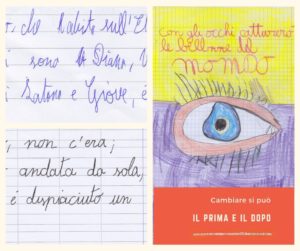 che abita sull'E
sono la Diana, V
Saturno e Giove, é
non c'era;
andata da sola,
é dispiaciuto un
con gli occhi catturerò
le bellezze del
MONDO
Cambiare si può
IL PRIMA E IL DOPO